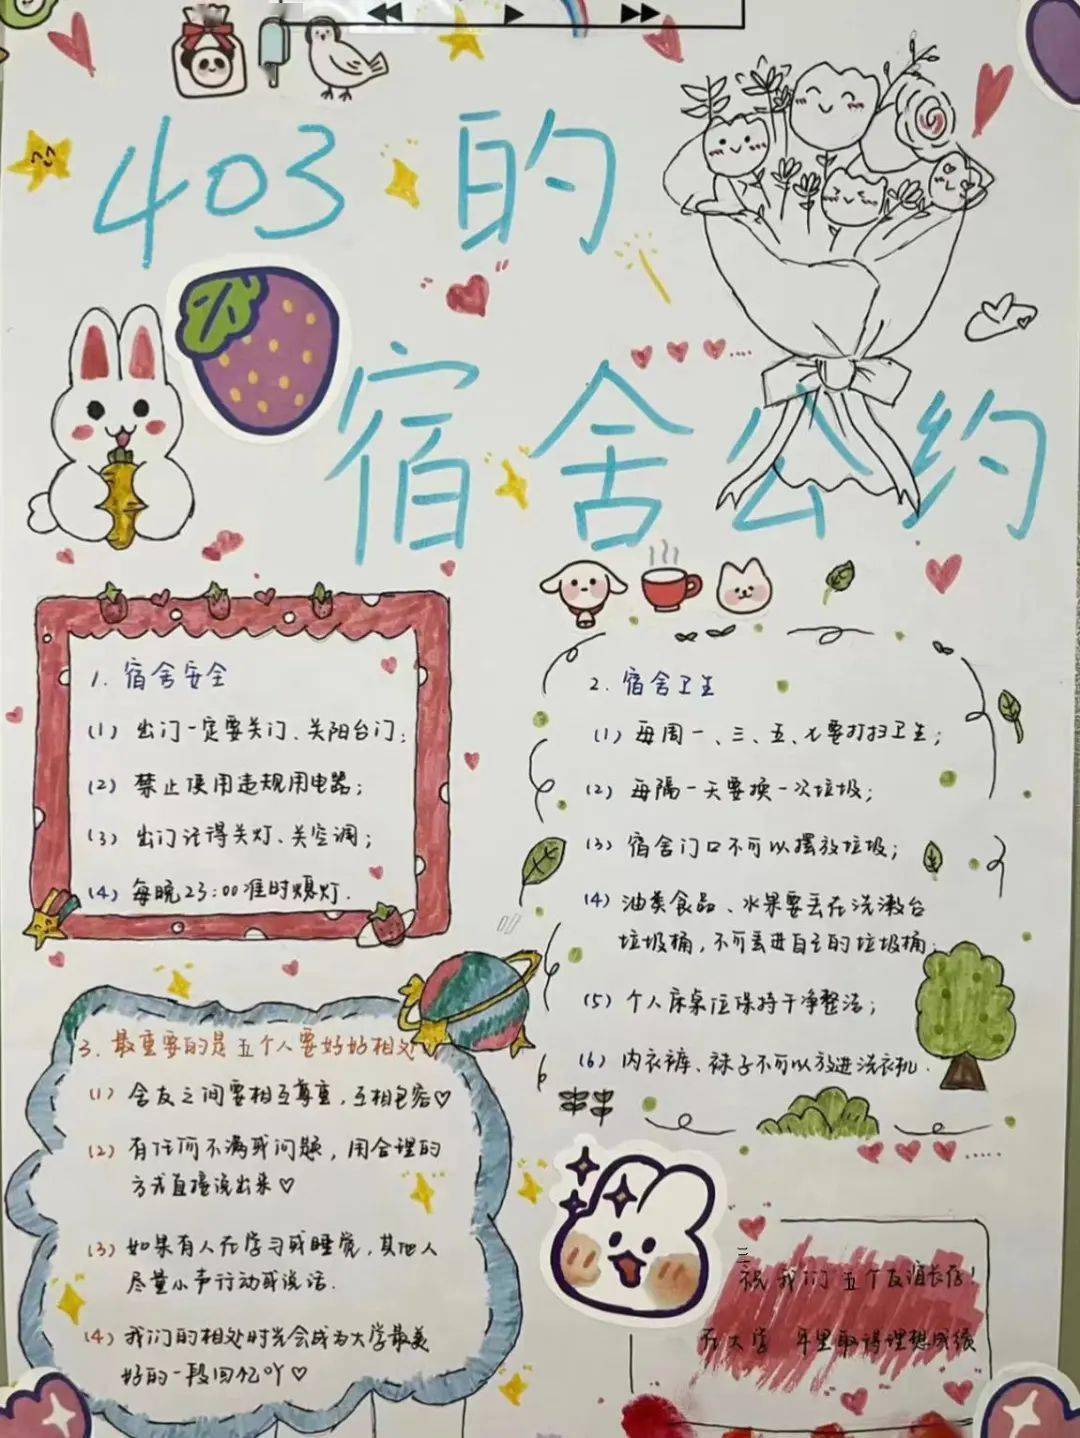 403的
宿舍公约
1. 宿舍安全
(1) 出门一定要关门、关阳台门;
(2) 禁止使用违规用电器;
(3) 出门记得关灯、关空调;
(4) 每晚23:00准时熄灯.
2. 宿舍卫生
(1) 每周一、三、五、七要打扫卫生;
(2) 每隔一天要换一次垃圾;
(3) 宿舍门口不可以摆放垃圾;
(4) 油类食品、水果要丢在洗漱台
垃圾桶,不可丢进自己的垃圾桶;
(5) 个人床桌位保持干净整洁;
(6) 内衣裤、袜子不可以放进洗衣机.
3. 最重要的是五个人要好好相处
(1) 舍友之间要相互尊重,互相包容♡
(2) 有任何不满或问题,用合理的
方式直接说出来♡
(3) 如果有人在学习或睡觉,其他人
尽量小声行动或说话.
(4) 我们的相处时光会成为大学最美
好的一段回忆吖♡
祝我们五个友谊长存!
三
在大学 年里取得理想成绩